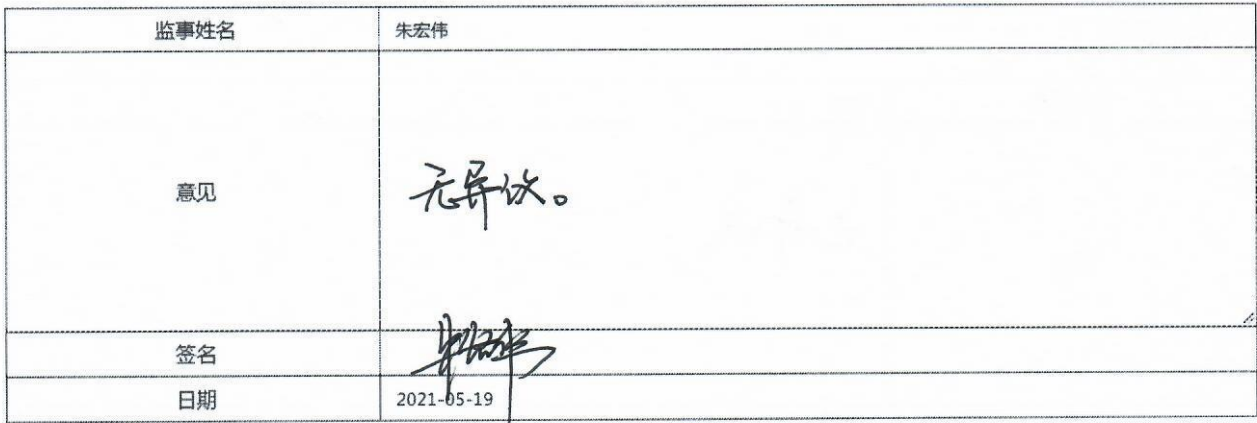 监事姓名 朱宏伟
意见 无异议。
签名 朱宏伟
日期 2021-05-19